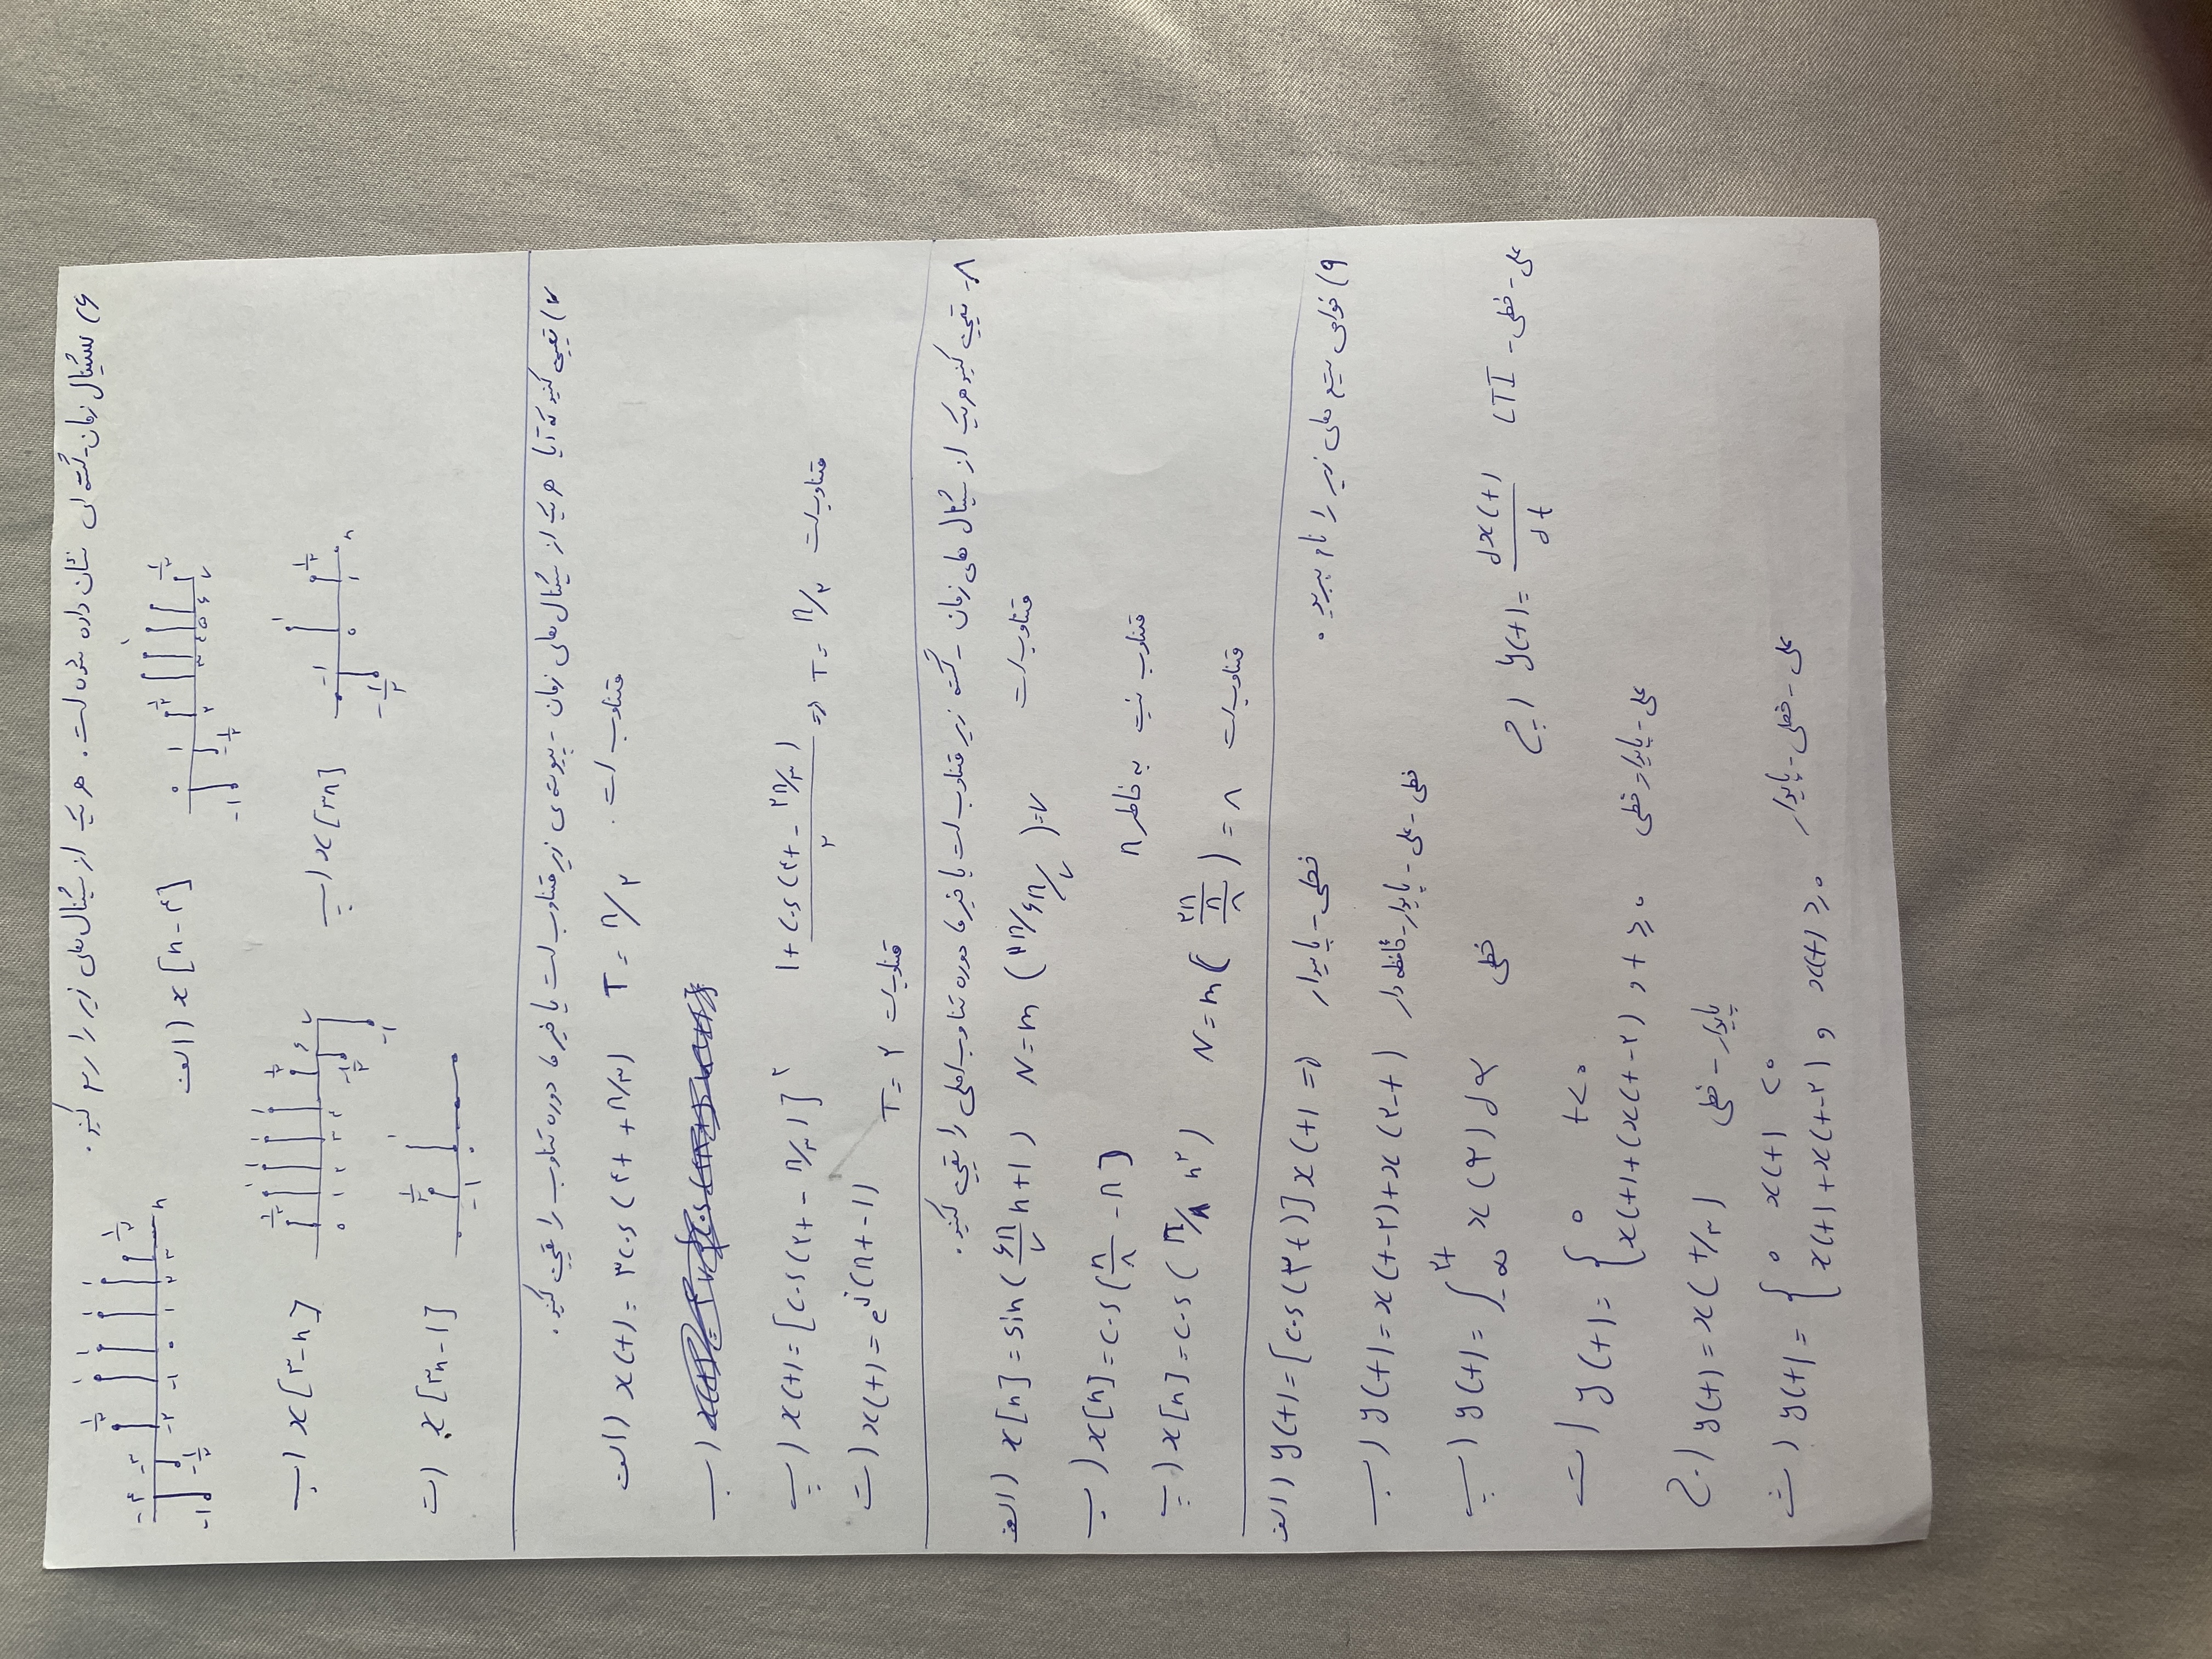 ۶) سیگنال زمان-گسسته ای نشان داده شده است. هر یک از سیگنال های زیر را رسم کنید.
-۴ -۳ -۲ -۱ ۰ ۱ ۲ ۳ n
-۱ -۱/۲ ۱/۲ ۱ ۱ ۱ ۱ ۱/۲
الف) x[n-۴]
۰ ۱ ۲ ۳ ۴ ۵ ۶ ۷
-۱ -۱/۲ ۱/۲ ۱ ۱/۲
ب) x[۳-n]
۰ ۱ ۲ ۳ ۴ ۶ ۷
۱/۲ ۱ ۱ ۱ ۱ ۱/۲ -۱/۲ -۱
پ) x[۳n]
-۱ ۰ ۱ n
-۱/۲ ۱ ۱/۲
ت) x[۳n-۱]
-۱ ۰
۱/۲ ۱
۷) تعیین کنید که آیا هر یک از سیگنال های زمان - پیوسته ی زیر متناوب است یا خیر دوره تناوب را تعیین کنید.
الف) x(t) = ۳cos(۴t + π/۳) T = π/۲ متناوب است.
ب)
پ) x(t) = [cos(۲t - π/۳)]^۲ (۱ + cos(۴t - ۲π/۳))/۲ => T = π/۲ متناوب است
ت) x(t) = e^j(πt-۱) T = ۲ متناوب است
۸- تعیین کنید هر یک از سیگنال های زمان - گسسته زیر متناوب است یا خیر دوره تناوب اصلی را تعیین کنید.
الف) x[n] = sin(۶π/۷ n+۱) N = m(۲π/۶π/۷) = ۷ متناوب است
ب) x[n] = cos(n/۸ - π) متناوب نیست به خاطر π
پ) x[n] = cos(π/۸ n^۲) N = m(۲π/(π/۸)) = ۸ متناوب است
۹) خواص سیستم های زیر را نام ببرید.
الف) y(t) = [cos(۳t)]x(t) => خطی - پایدار
ب) y(t) = x(t-۲)+x(۲-t) خطی - علی - پایدار - حافظه دار
پ) y(t) = ∫_-∞^۲t x(τ)dτ خطی
ج) y(t) = dx(t)/dt علی - خطی - LTI
ت) y(t) = { ۰ t<۰
x(t)+(x(t-۲) , t ≥ ۰ علی - پایدار - خطی
ج) y(t) = x(t/۳) پایدار - خطی
ث) y(t) = { ۰ x(t) <۰
x(t)+x(t-۲) , x(t) ≥ ۰ علی - خطی - پایدار